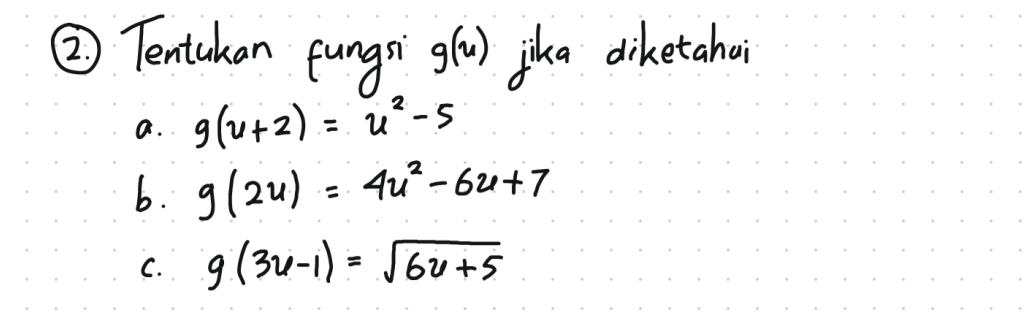 2. Tentukan fungsi g(u) jika diketahui
a. g(u+2) = u² - 5
b. g(2u) = 4u² - 6u + 7
c. g(3u-1) = √(6u+5)